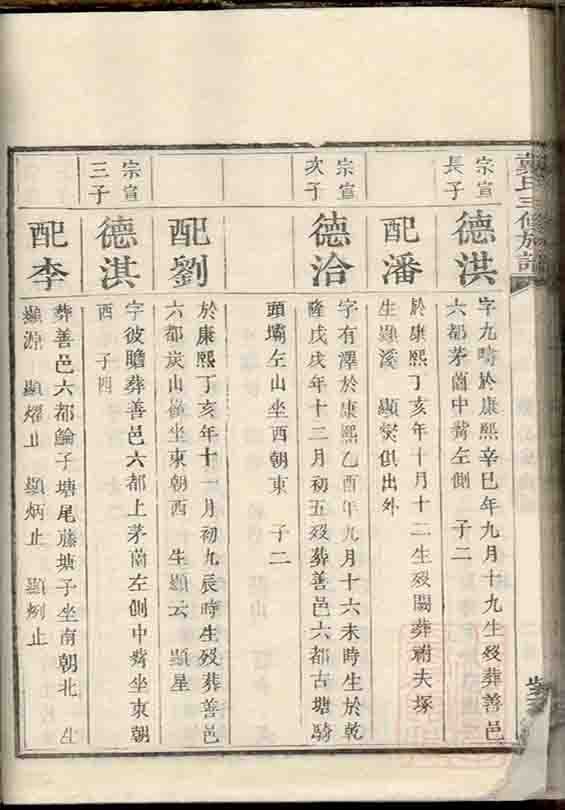 氏三修族譜
宗宣
長子
德洪
字九疇於康熙辛巳年九月十九生歿葬善邑
六都茅菌中嘴左側 子二
配潘
於康熙丁亥年十月十二生歿闕葬祔夫塚
生顯溪 顯爕俱出外
宗宣
次子
德洽
字有澤於康熙乙酉年九月十六未時生於乾
隆戊戌年十二月初五歿葬善邑六都古塘騎
頭壩左山坐西朝東 子二
配劉
於康熙丁亥年十一月初九辰時生歿葬善邑
六都炭山 坐東朝西 生顯云 顯星
宗宣
三子
德淇
字彼瞻葬善邑六都上茅菌左側中嘴坐東朝
西 子四
配李
葬善邑六都鯩子塘尾藤塘子坐南朝北 生
顯源 顯燿止 顯炳止 顯炯止